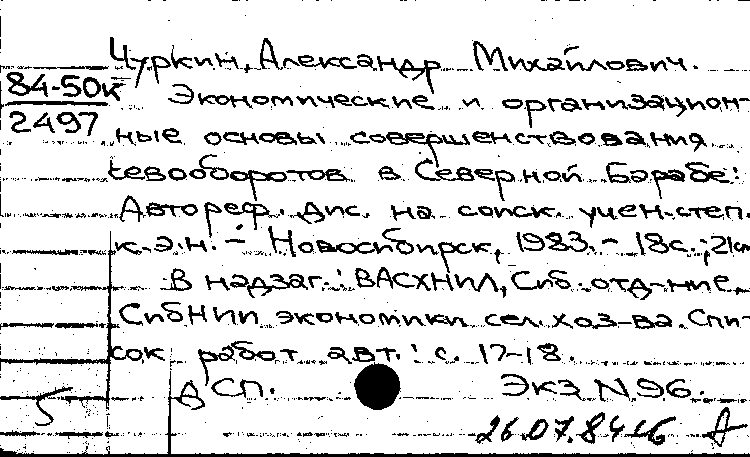 Чуркин, Александр Михайлович.
84-50к
2497
Экономические и организацион-
ные основы совершенствования
севооборотов в Северной Барабе:
Автореф. дис. на соиск. учен. степ.
к.э.н. – Новосибирск, 1983. – 18с.; 21см
В надзаг.: ВАСХНИЛ, Сиб. отд-ние,
СибНИИ экономики сел. хоз-ва. Спи-
сок работ авт.: с. 17-18.
ДСП. Экз N 96.
5
26.07.84